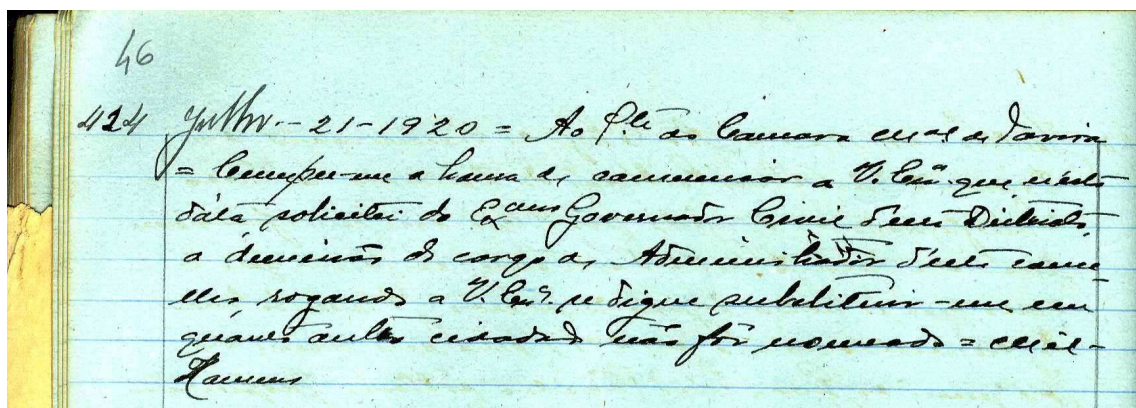 46
424 Julho - 21 - 1920 = Ao P.te da Camara M.al de Tavira
= Cumpre-me a honra de comunicar a V. Ex.ª que n'esta
data solicitei do Ex.mo Governador Civil d'este Districto,
a demissão do cargo de Administrador d'este conce-
lho, rogando a V. Ex.ª se digne substituir-me em
quanto outro cidadão não fôr nomeado =